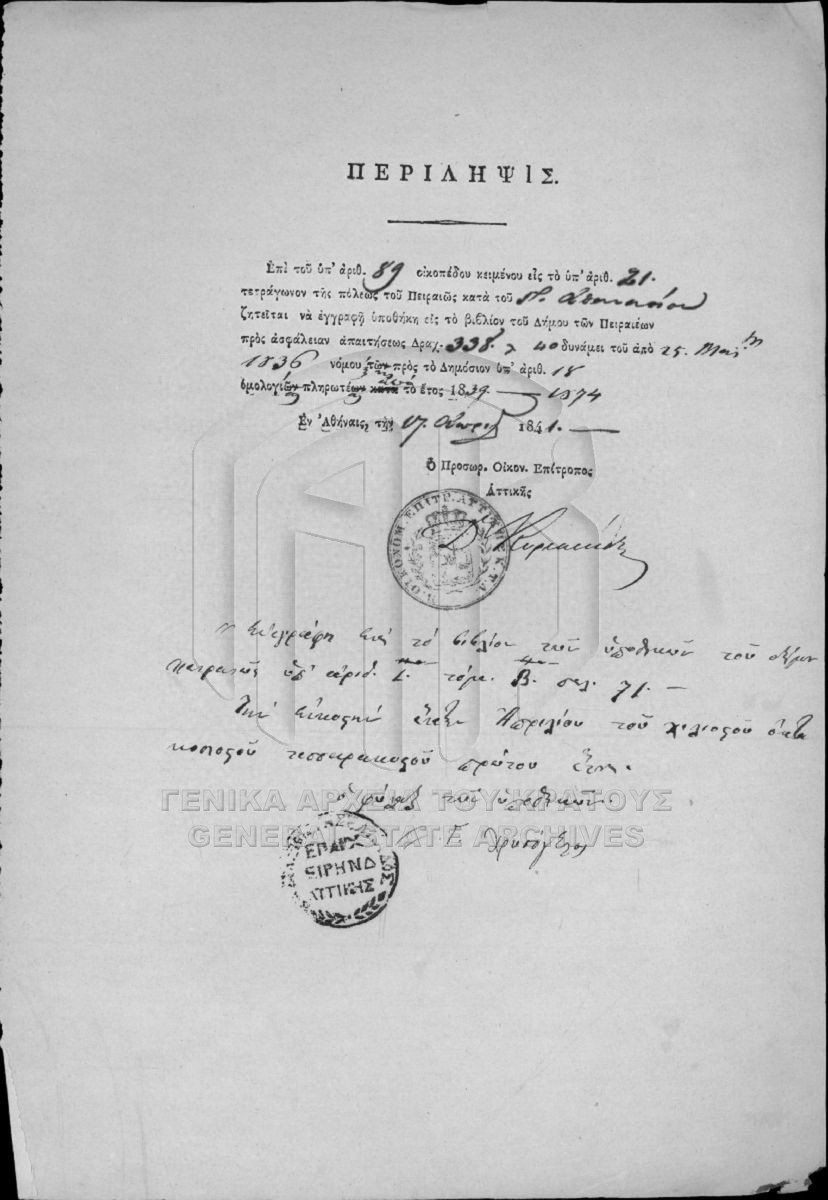 ΠΕΡΙΛΗΨΙΣ.
Ἐπὶ τοῦ ὑπ' ἀριθ. 89 οἰκοπέδου κειμένου εἰς τὸ ὑπ' ἀριθ. 21.
τετράγωνον τῆς πόλεως τοῦ Πειραιῶς κατὰ τοῦ
ζητεῖται νὰ ἐγγραφῇ ὑποθήκη εἰς τὸ βιβλίον τοῦ Δήμου τῶν Πειραιέων
πρὸς ἀσφάλειαν ἀπαιτήσεως Δραχ. 338. λ 40 δυνάμει τοῦ ἀπὸ 25. Μαΐ
1836 νόμου τῶν πρὸς τὸ Δημόσιον ὑπ' ἀριθ. 18
ὁμολογιῶν πληρωτέων κατὰ τὸ ἔτος 1839 — 1874
Ἐν Ἀθήναις, τὴν 17. Ἀπριλ 1841. —
Ὁ Προσωρ. Οἰκον. Ἐπίτροπος
Ἀττικῆς
ΟΙΚΟΝΟΜ. ΕΠΙΤΡ. ΑΤΤΙΚΗΣ Κ.Τ.Λ.
Ἐνεγράφη εἰς τὸ βιβλίον τῶν ὑποθηκῶν τοῦ δήμου
Πειραιῶς ὑπ' ἀριθ. τόμ. Β. σελ. 71. —
Τὴν εἰκοστὴν Ἀπριλίου τοῦ χιλιοστοῦ ὀκτα
κοσιοστοῦ τεσσαρακοστοῦ πρώτου ἔτους.
ὁ φύλαξ τῶν ὑποθηκῶν.
ΓΕΝΙΚΑ ΑΡΧΕΙΑ ΤΟΥ ΚΡΑΤΟΥΣ
GENERAL STATE ARCHIVES
ΕΠΑΡΧ
ΕΙΡΗΝΟΔ
ΑΤΤΙΚΗΣ